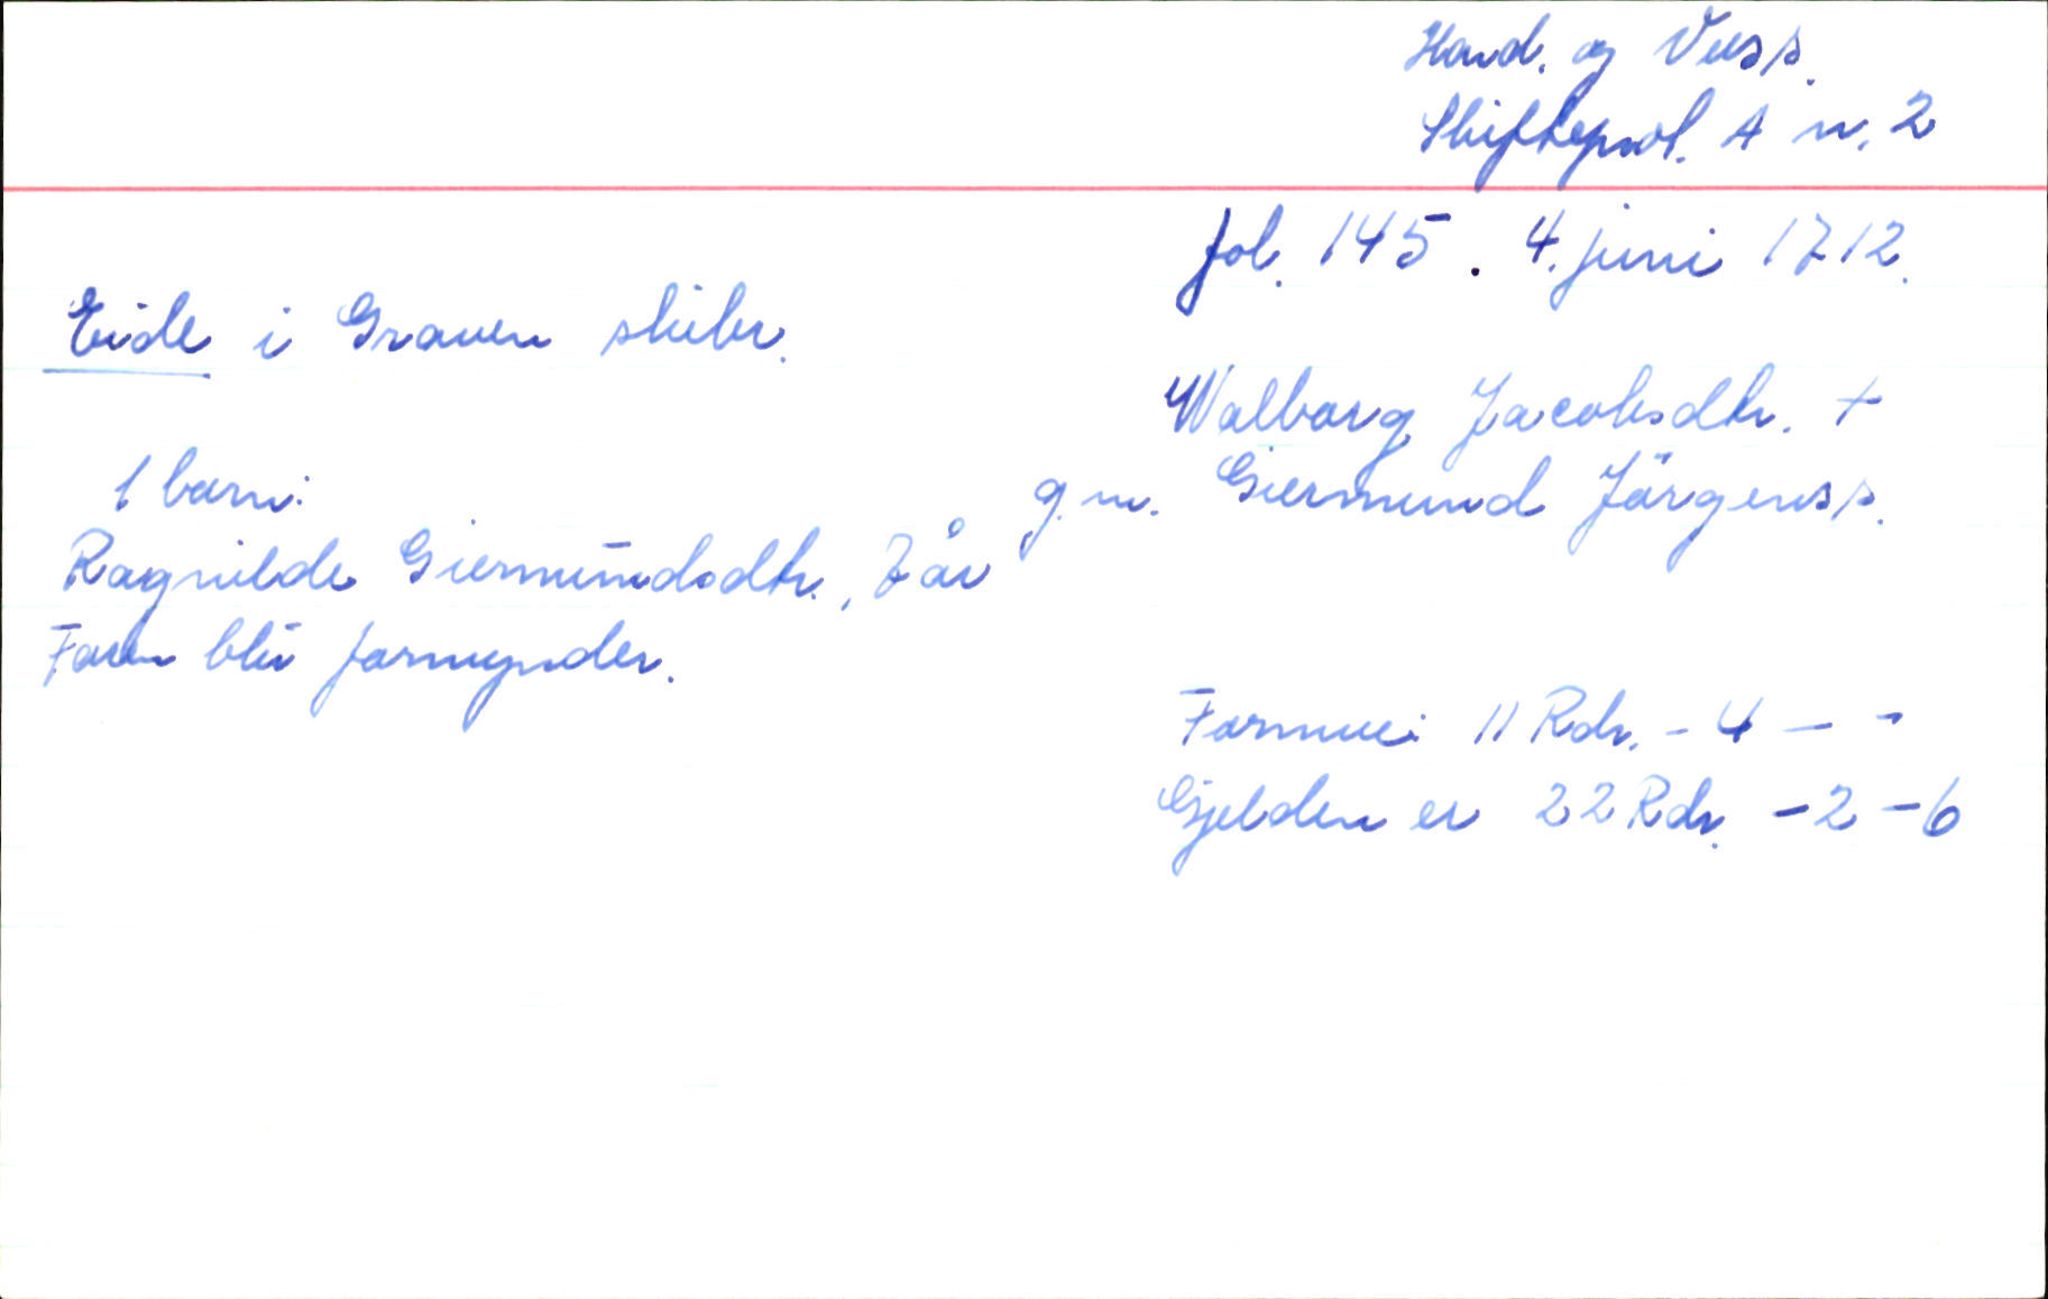 Hard. og Voss.
Skifteprot. A n. 2
fol. 145. 4. juni 1712.
Eide i Graven skibr.
Walborg Jacobsdtr. +
g.m. Giermund Jörgenss.
1 barn:
Ragnilde Giermundsdtr., 7 år
Faren bliv formynder.
Formue: 11 Rdr. - 4 - -
Gjelden er 22 Rdr. - 2 - 6